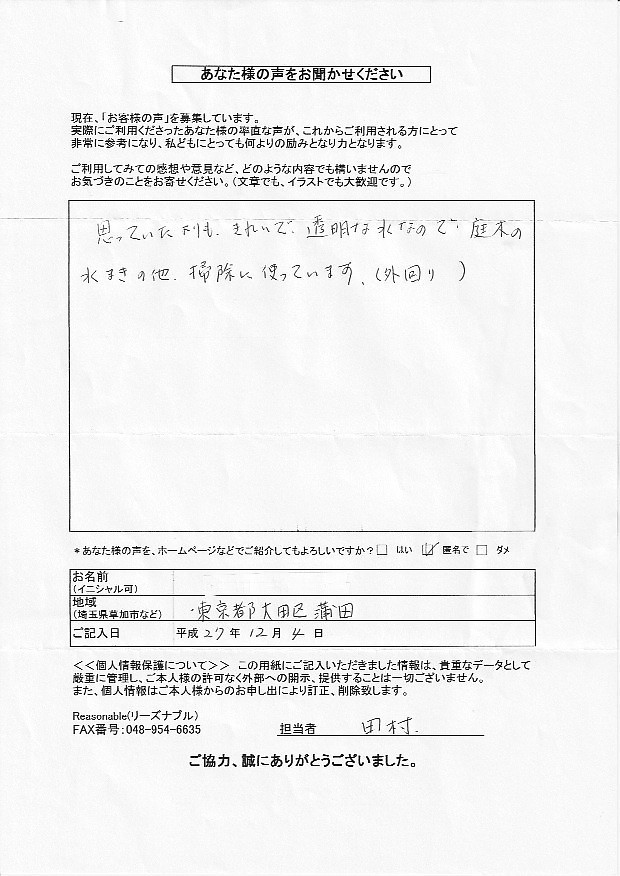 あなた様の声をお聞かせください
現在、「お客様の声」を募集しています。
実際にご利用くださったあなた様の率直な声が、これからご利用される方にとって
非常に参考になり、私どもにとっても何よりの励みとなり力となります。
ご利用してみての感想や意見など、どのような内容でも構いませんので
お気づきのことをお寄せください。（文章でも、イラストでも大歓迎です。）
思っていたよりも、きれいで、透明な水なので、庭木の
水まきの他、掃除に使っています。（外回り　）
*あなた様の声を、ホームページなどでご紹介してもよろしいですか？□ はい ☑ 匿名で □ ダメ
お名前
(イニシャル可)
地域
(埼玉県草加市など) 東京都大田区蒲田
ご記入日 平成 27 年 12 月 4 日
<<個人情報保護について>> この用紙にご記入いただきました情報は、貴重なデータとして
厳重に管理し、ご本人様の許可なく外部への開示、提供することは一切ございません。
また、個人情報はご本人様からのお申し出により訂正、削除致します。
Reasonable(リーズナブル)
FAX番号:048-954-6635 担当者 田村.
ご協力、誠にありがとうございました。